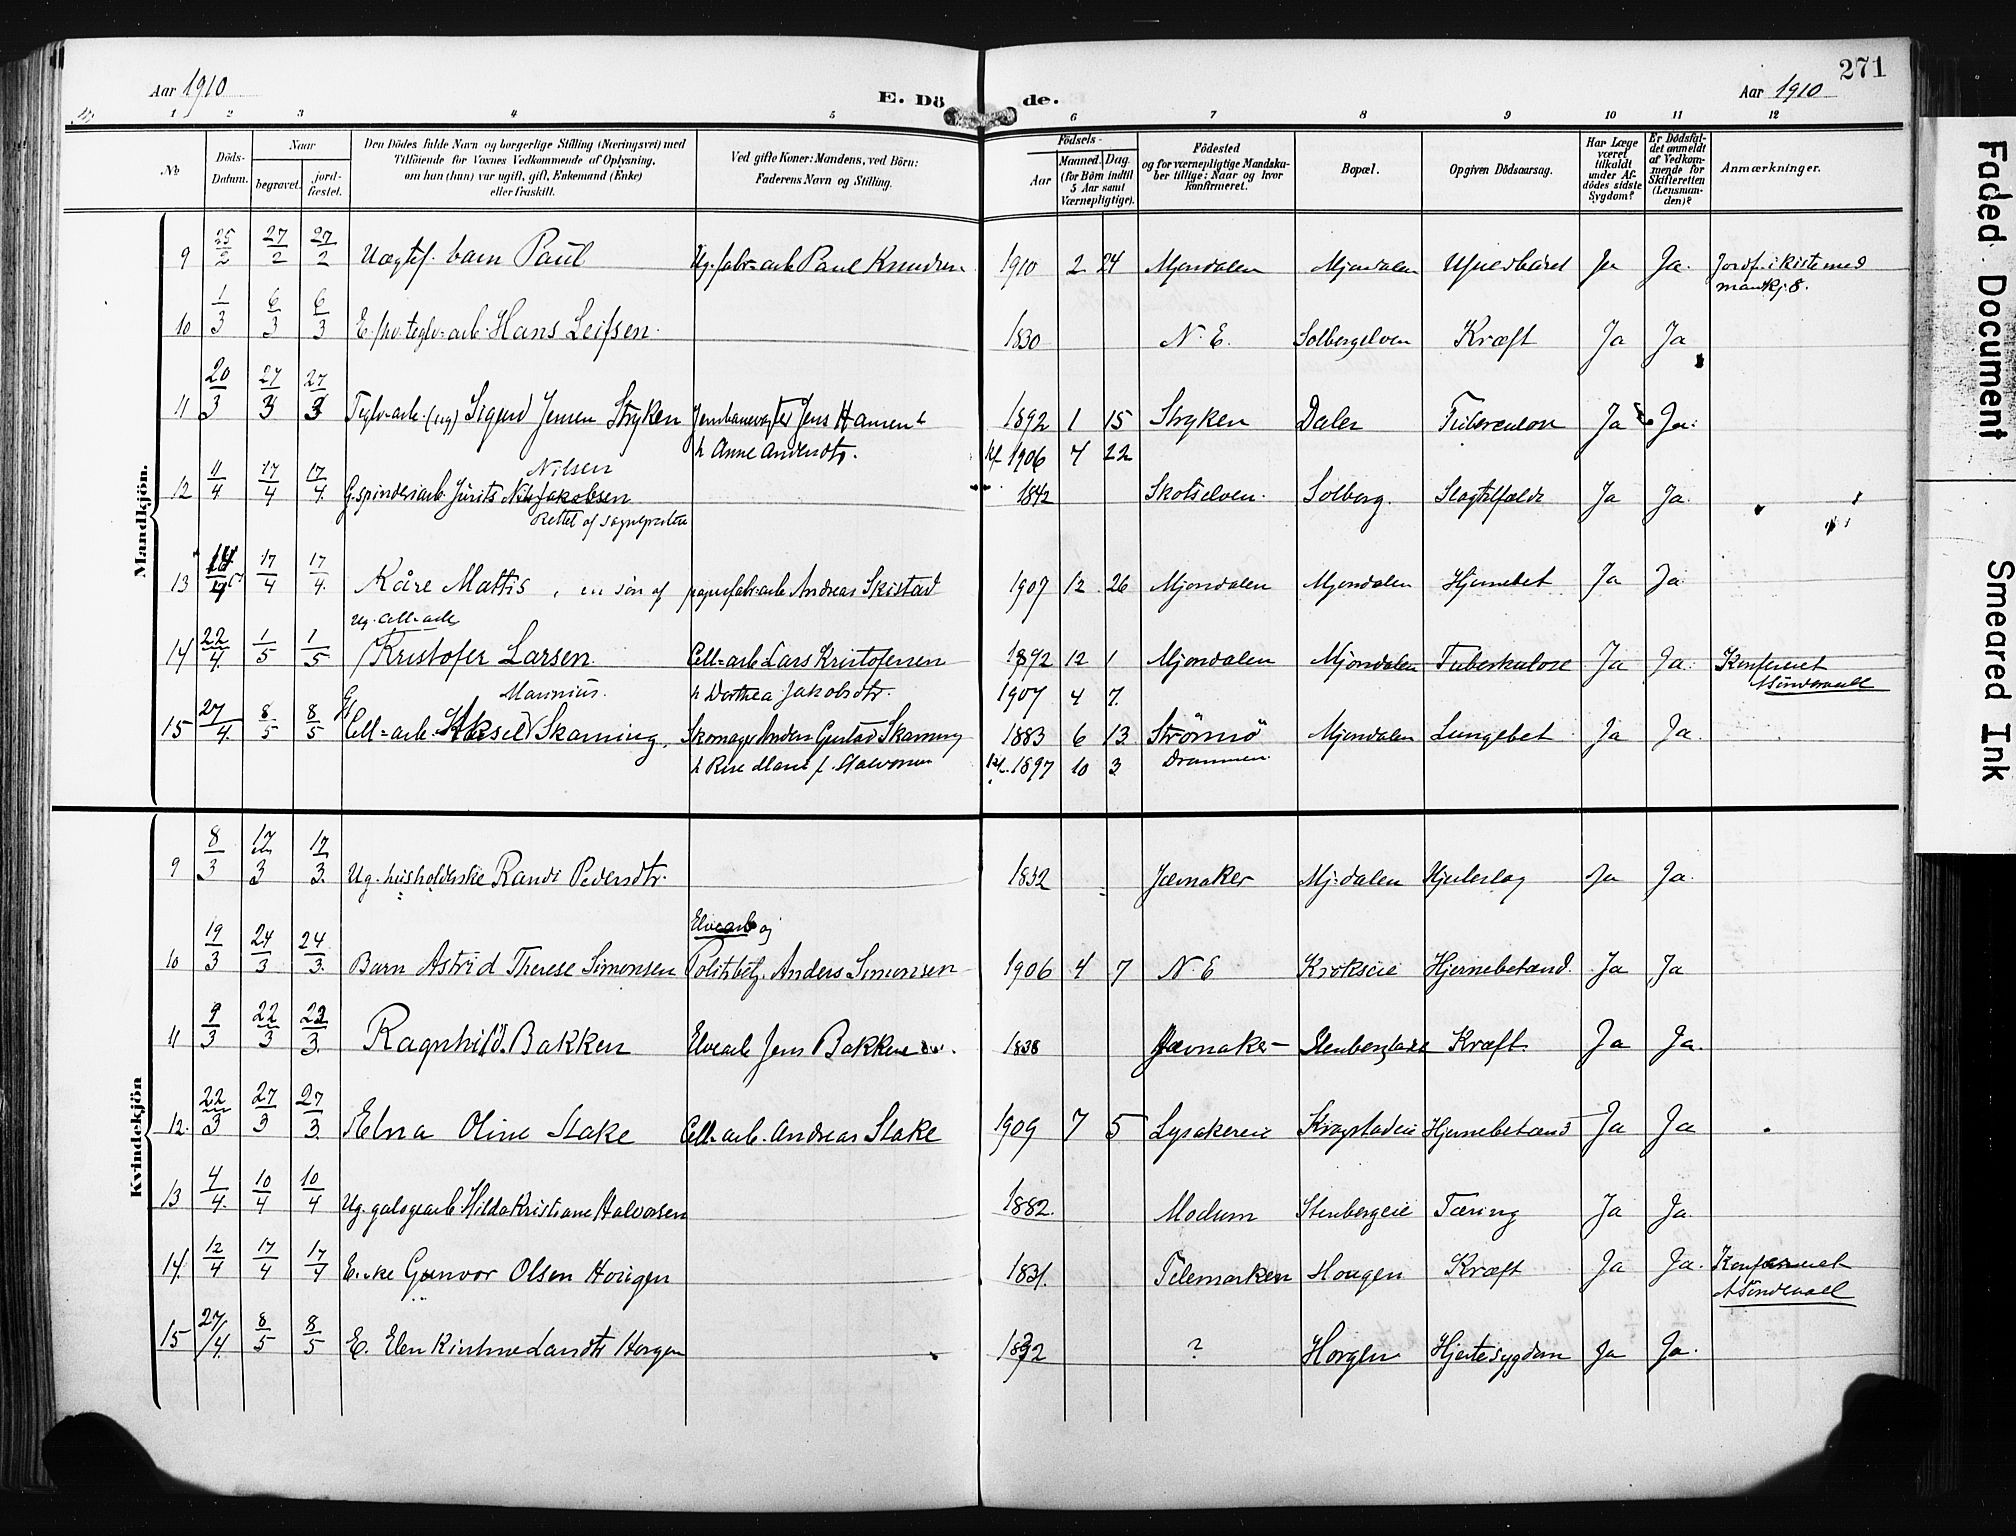 271
Aar 1910
E. Dö de.
Aar 1910
1 2 3 4 5 6 7 8 9 10 11 12
No
Döds-Datum.
Naar
begravet.
jord-fæstet.
Den Dödes fulde Navn og borgerlige Stilling (Næringsvei) med
Tilföiende for Voxnes Vedkommende af Oplysning,
om han (hun) var ugift, gift, Enkemand (Enke)
eller fraskilt.
Ved gifte Koner: Mandens, ved Börn:
Faderens Navn og Stilling.
Födsels-
Aar
Maaned. Dag.
(for Börn indtil
5 Aar samt
Værnepligtige).
Födested
og for værnepligtige Mandska-
ber tillige: Naar og hvor
konfirmeret.
Bopæl.
Opgiven Dödsaarsag.
Har Læge
været
tilkaldt
under Af-
dödes sidste
Sygdom?
Er Dödsfal-
det anmeldt
af Vedkom-
mende for
Skifteretten
(Lensman-
den)?
Anmærkninger.
Mandkjön.
9 25/2 27/2 27/2 Uægtef. barn Paul Ug. fabr=arb Paul Knudsen 1910 2 24 Mjøndalen Mjøndalen Ja Ja. Jordf. i kiste med
mandkj. 8.
10 1/3 6/3 6/3 E. fhv. teglv=arb. Hans Leifsen. 1830 N. E. Solbergelven Kræft Ja Ja
11 20/3 27/3 27/3 Teglv=arb. (ug) Sigurd Jensen Stryken Jernbanevogter Jens Hansen & 1892 1 15 Stryken Dalen Tuberculose Ja Ja.
h Anne Andersdtr. kf. 1906 4 22
Nilsen
12 11/4 17/4 17/4 G. spinderiarb. Jakobsen 1842 Skotselven. Solberg. Slagtilfælde Ja Ja.
Rettet af sognepresten
13 17/4 17/4 Kåre Mattis, en søn af papirfabr.arb Andreas Skistad 1907 12 26 Mjøndalen Mjøndalen Hjernebet Ja Ja.
Ug. Cell=arb
14 22/4 1/5 1/5 Kristofer Larsen. Cell=arb Lars Kristofersen 1892 12 1 Mjøndalen Mjøndalen Tuberkulose Ja Ja. Konfereret
h Dorthea Jakobsdtr. 1907 4 7. ASündevall
Marinius.
15 27/4 8/5 8/5 G. Cell=arb. Aksel Skarning, Skomager Anders Gustav Skarning 1883 6 13 Strømsø Mjøndalen Lungebet Ja Ja.
kf. 1897 10 3 Drammen.
Kvindekjön
9 8/3 17/3 17/3 Ug. husholderske Randi Pedersdtr. 1832 Jævnaker Mj=dalen Hjerteslag Ja Ja.
Elvearb og
10 19/3 24/3 24/3 Barn Astrid Therese Simonsen Politibetj. Anders Simonsen 1906 4 7 N. E Krokseie Hjernebetænd. Ja Ja
11 9/3 22/3 22/3 Ragnhild Bakken Elvearb Jens Bakken 1838 Jævnaker Stenbergløkk Kræft. Ja Ja.
12. 22/3 27/3 27/3 Elna Oline Stake Cell=arb. Andreas Stake 1909 7 5 Lysakereie Krogstadeie Hjernebetænd Ja Ja
13 4/4 10/4 10/4 Ug. galogearb Hilda Kristiane Halvorsen 1882. Modum Stenbergeie Tæring Ja Ja.
14. 12/4 17/4 17/4 E.-ke Gunvor Olsen Hougen 1831. Telemarken Hougen Kræft Ja Ja. Konfereret
ASündevall
15 27/4 8/5 8/5 E. Elen Kirstine Larsdtr Horgen 1832 ? Horgen Hjertesygdom Ja Ja.
Faded Document
Smeared Ink